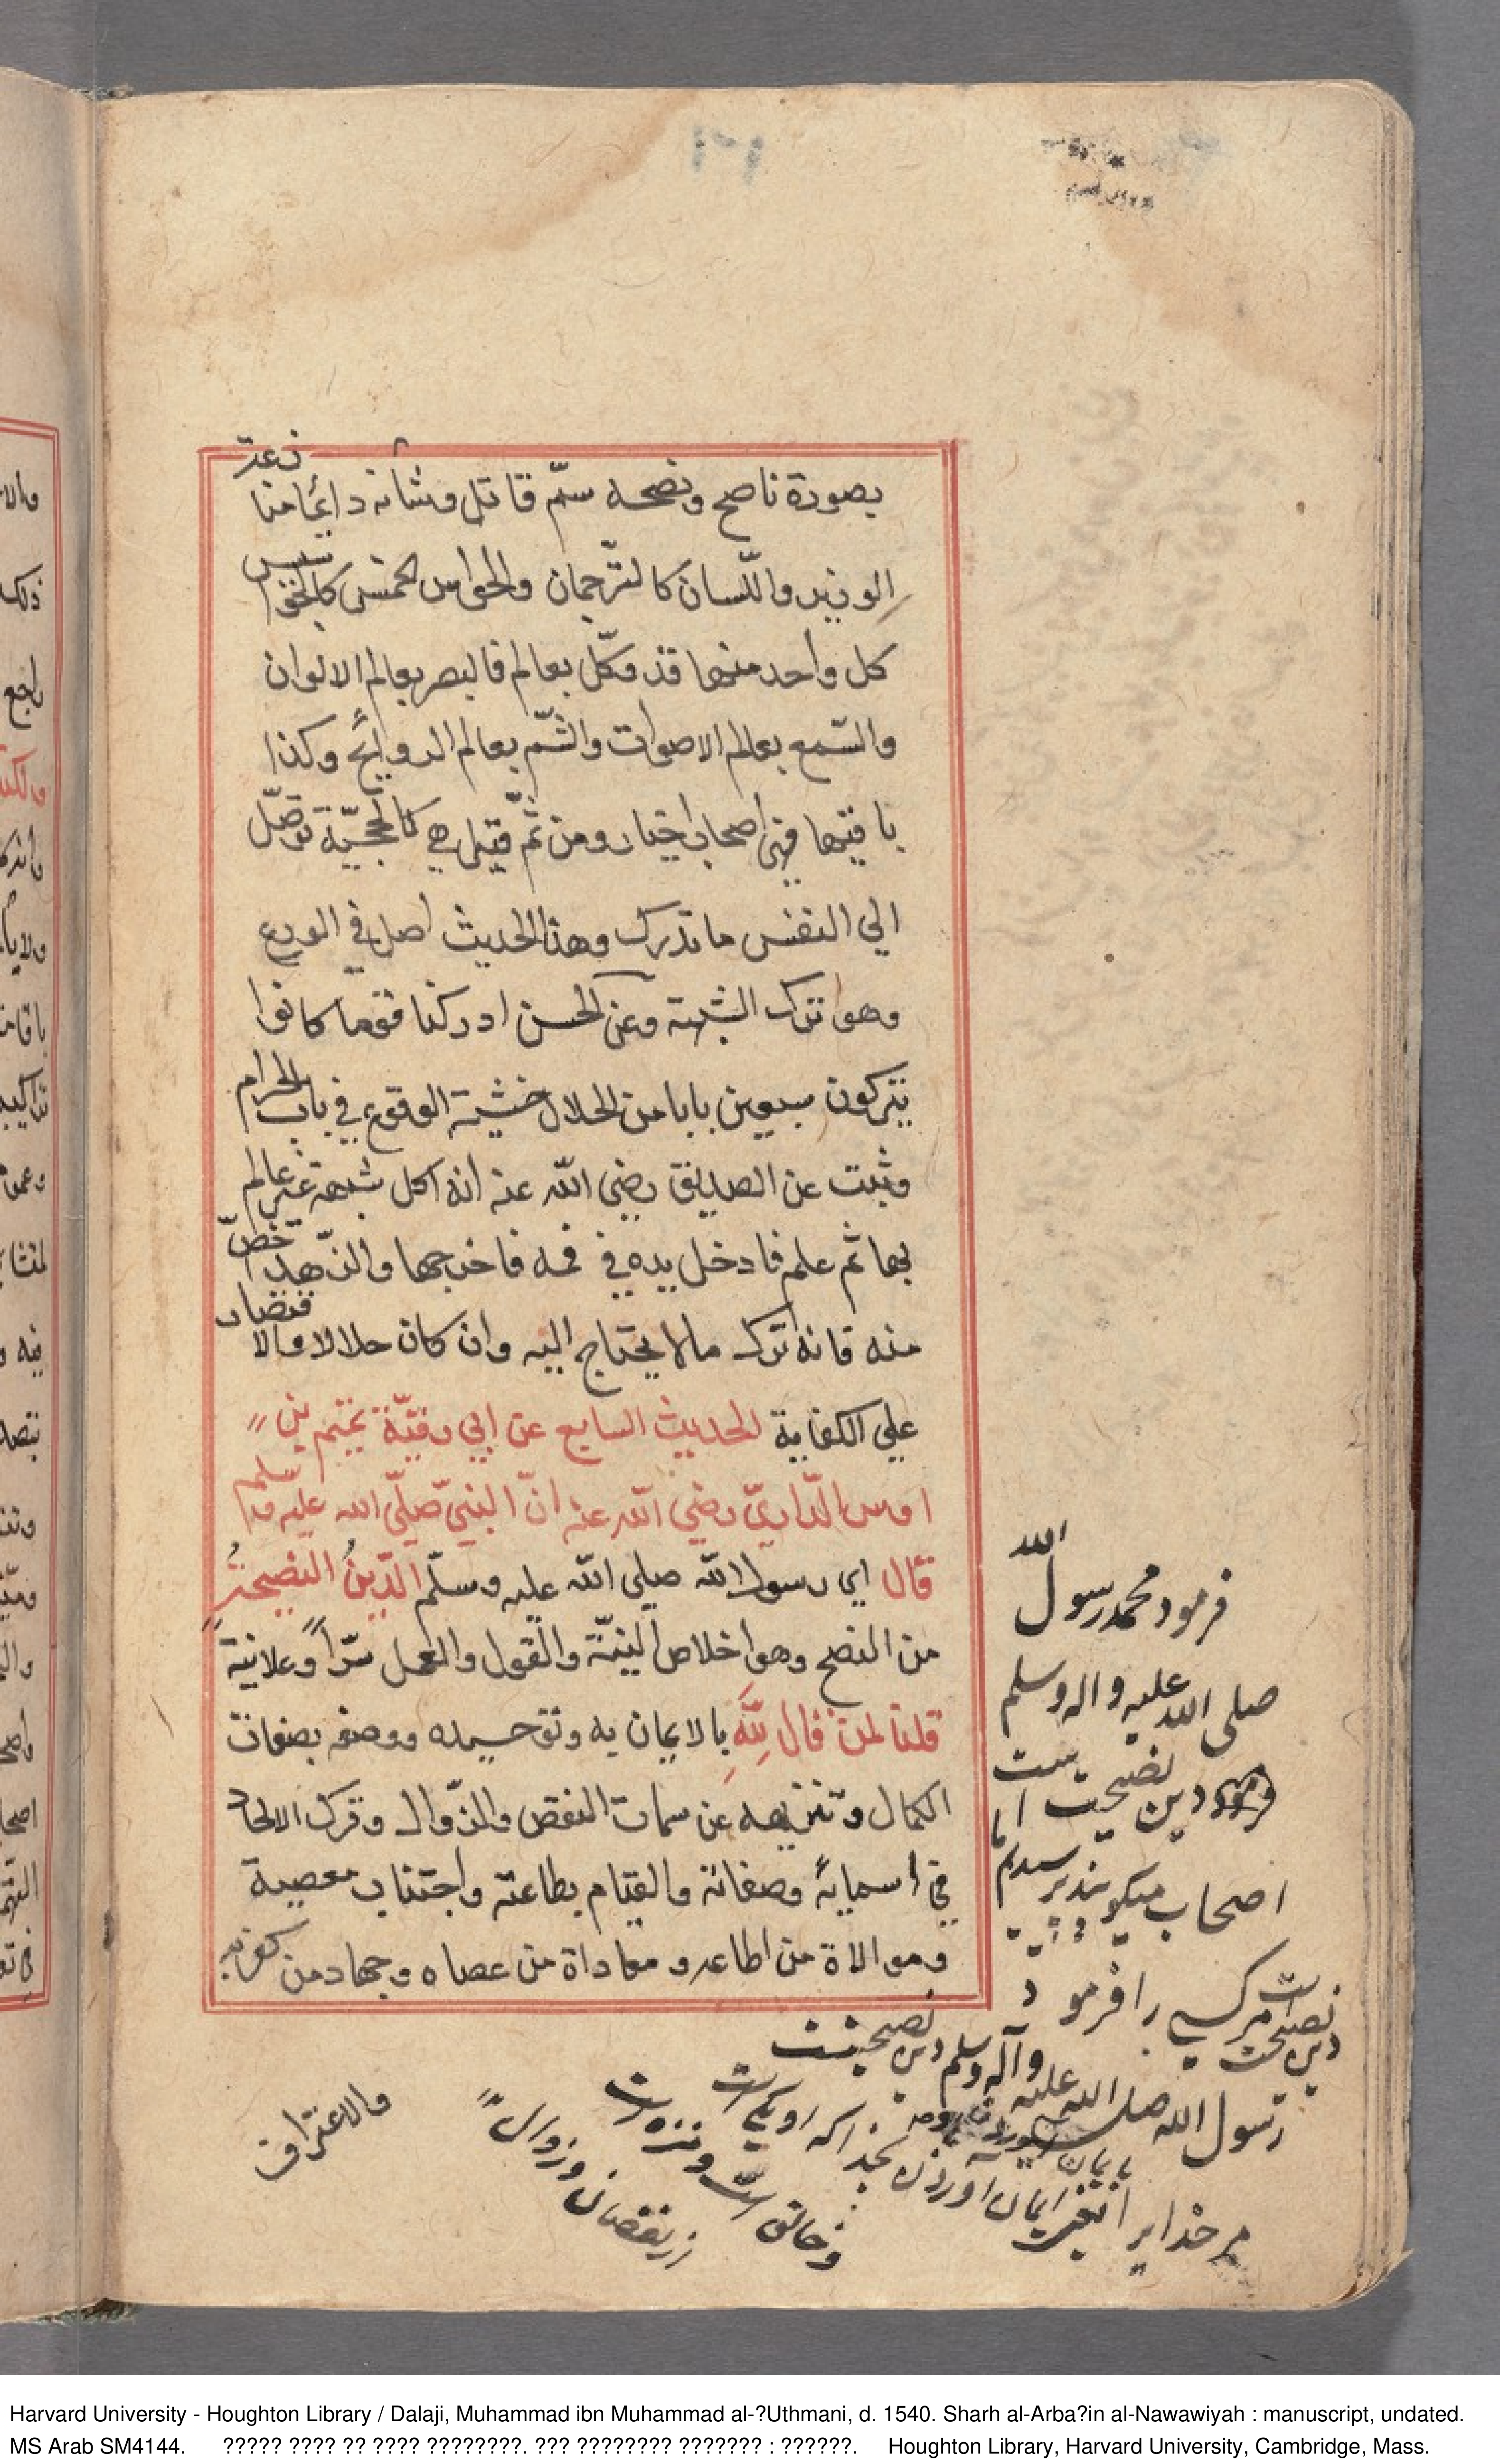 بصورة ناصح ونصحه سمّ قاتل وشانه دائما منازعة
الوزير واللّسان كالترّجمان والحواس الخمس كالجواسيس
كل واحد منها قد وكّل بعالم فالبصر بعالم الالوان
والسّمع بعالم الاصوات والشّم بعالم الروايح وكذا
باقيها فهي اصحاب اخبار ومن ثمّ قيل هي كالحجبّة توصّل
الي النفس ما تدرك وهذا الحديث اصل في الورع
وهو ترك الشبهة وعن الحسن ادركنا قوما كانوا
يتركون سبعين بابا من الحلال خشية الوقوع في باب الحرام
وثبت عن الصديق رضي الله عنه انه اكل شبهة غير عالم
بها ثم علم فادخل يده في فمه فاخرجها والزّهد اخصّ
منه فانه ترك ما لا يحتاج اليه وان كان حلالا والاقتصار
علي الكفاية الحديث السابع عن ابي رقيّة تميم بن
اوس الدّاريّ رضي الله عنه انّ النبيّ صلّي الله عليه وسلم
قال اي رسول الله صلي الله عليه وسلّم الدّينُ النصيحةُ
من النصح وهو اخلاص النيّة والقول والعمل سرّاً وعلانية
قلنا لمن قال لِلّهِ بالايمان به وتوحيده ووصفه بصفات
الكمال وتنزيهه عن سمات النقص والزّوال وترك الالحاد
في اسمايهً وصفاته والقيام بطاعته واجتناب معصية
وموالاة من اطاعه ومعاداة من عصاه وجهاد من كفر به
والاعتراف
فرمود محمد رسول الله
صلى الله عليه واله وسلم
دين نصيحت است
اصحاب ميكويند پرسيديم
كسي را فرمود
رسول الله صلى الله عليه وآله وسلم دين نصيحتست
مر خدايرا ايمان آوردن بخدا كه او يكيست
وخالق است ومنزه است
از نقصان وزوال